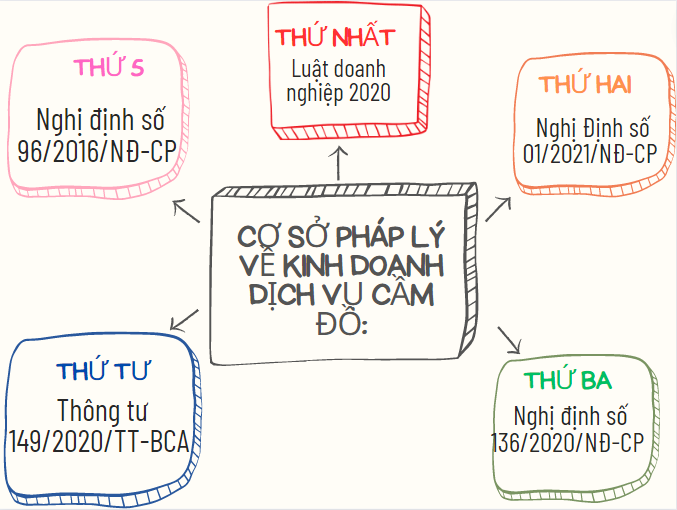 CƠ SỞ PHÁP LÝ
VỀ KINH DOANH
DỊCH VỤ CẦM
ĐỒ:
THỨ NHẤT
Luật doanh
nghiệp 2020
THỨ HAI
Nghị Định số
01/2021/NĐ-CP
THỨ BA
Nghị định số
136/2020/NĐ-CP
THỨ TƯ
Thông tư
149/2020/TT-BCA
THỨ 5
Nghị định số
96/2016/NĐ-CP